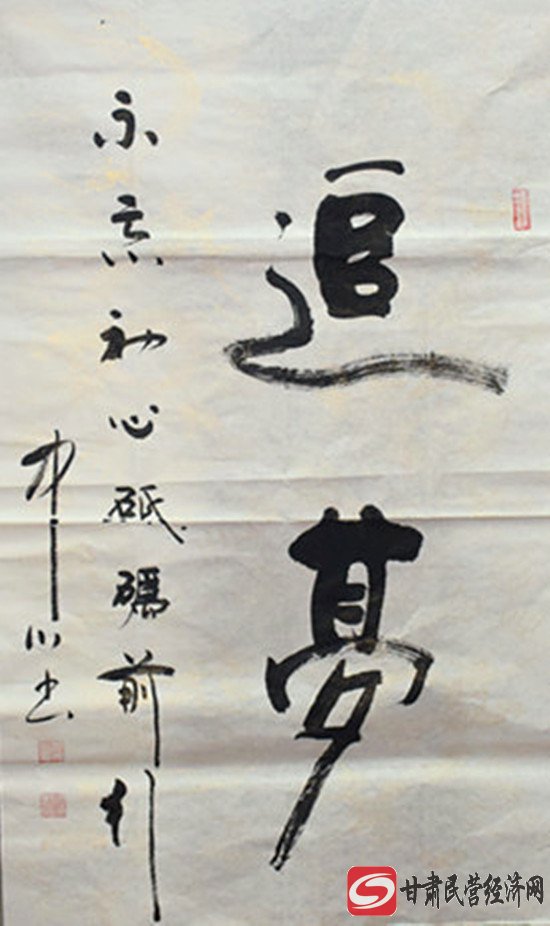 追夢
不忘初心砥礪前行
川書
甘肃民营经济网